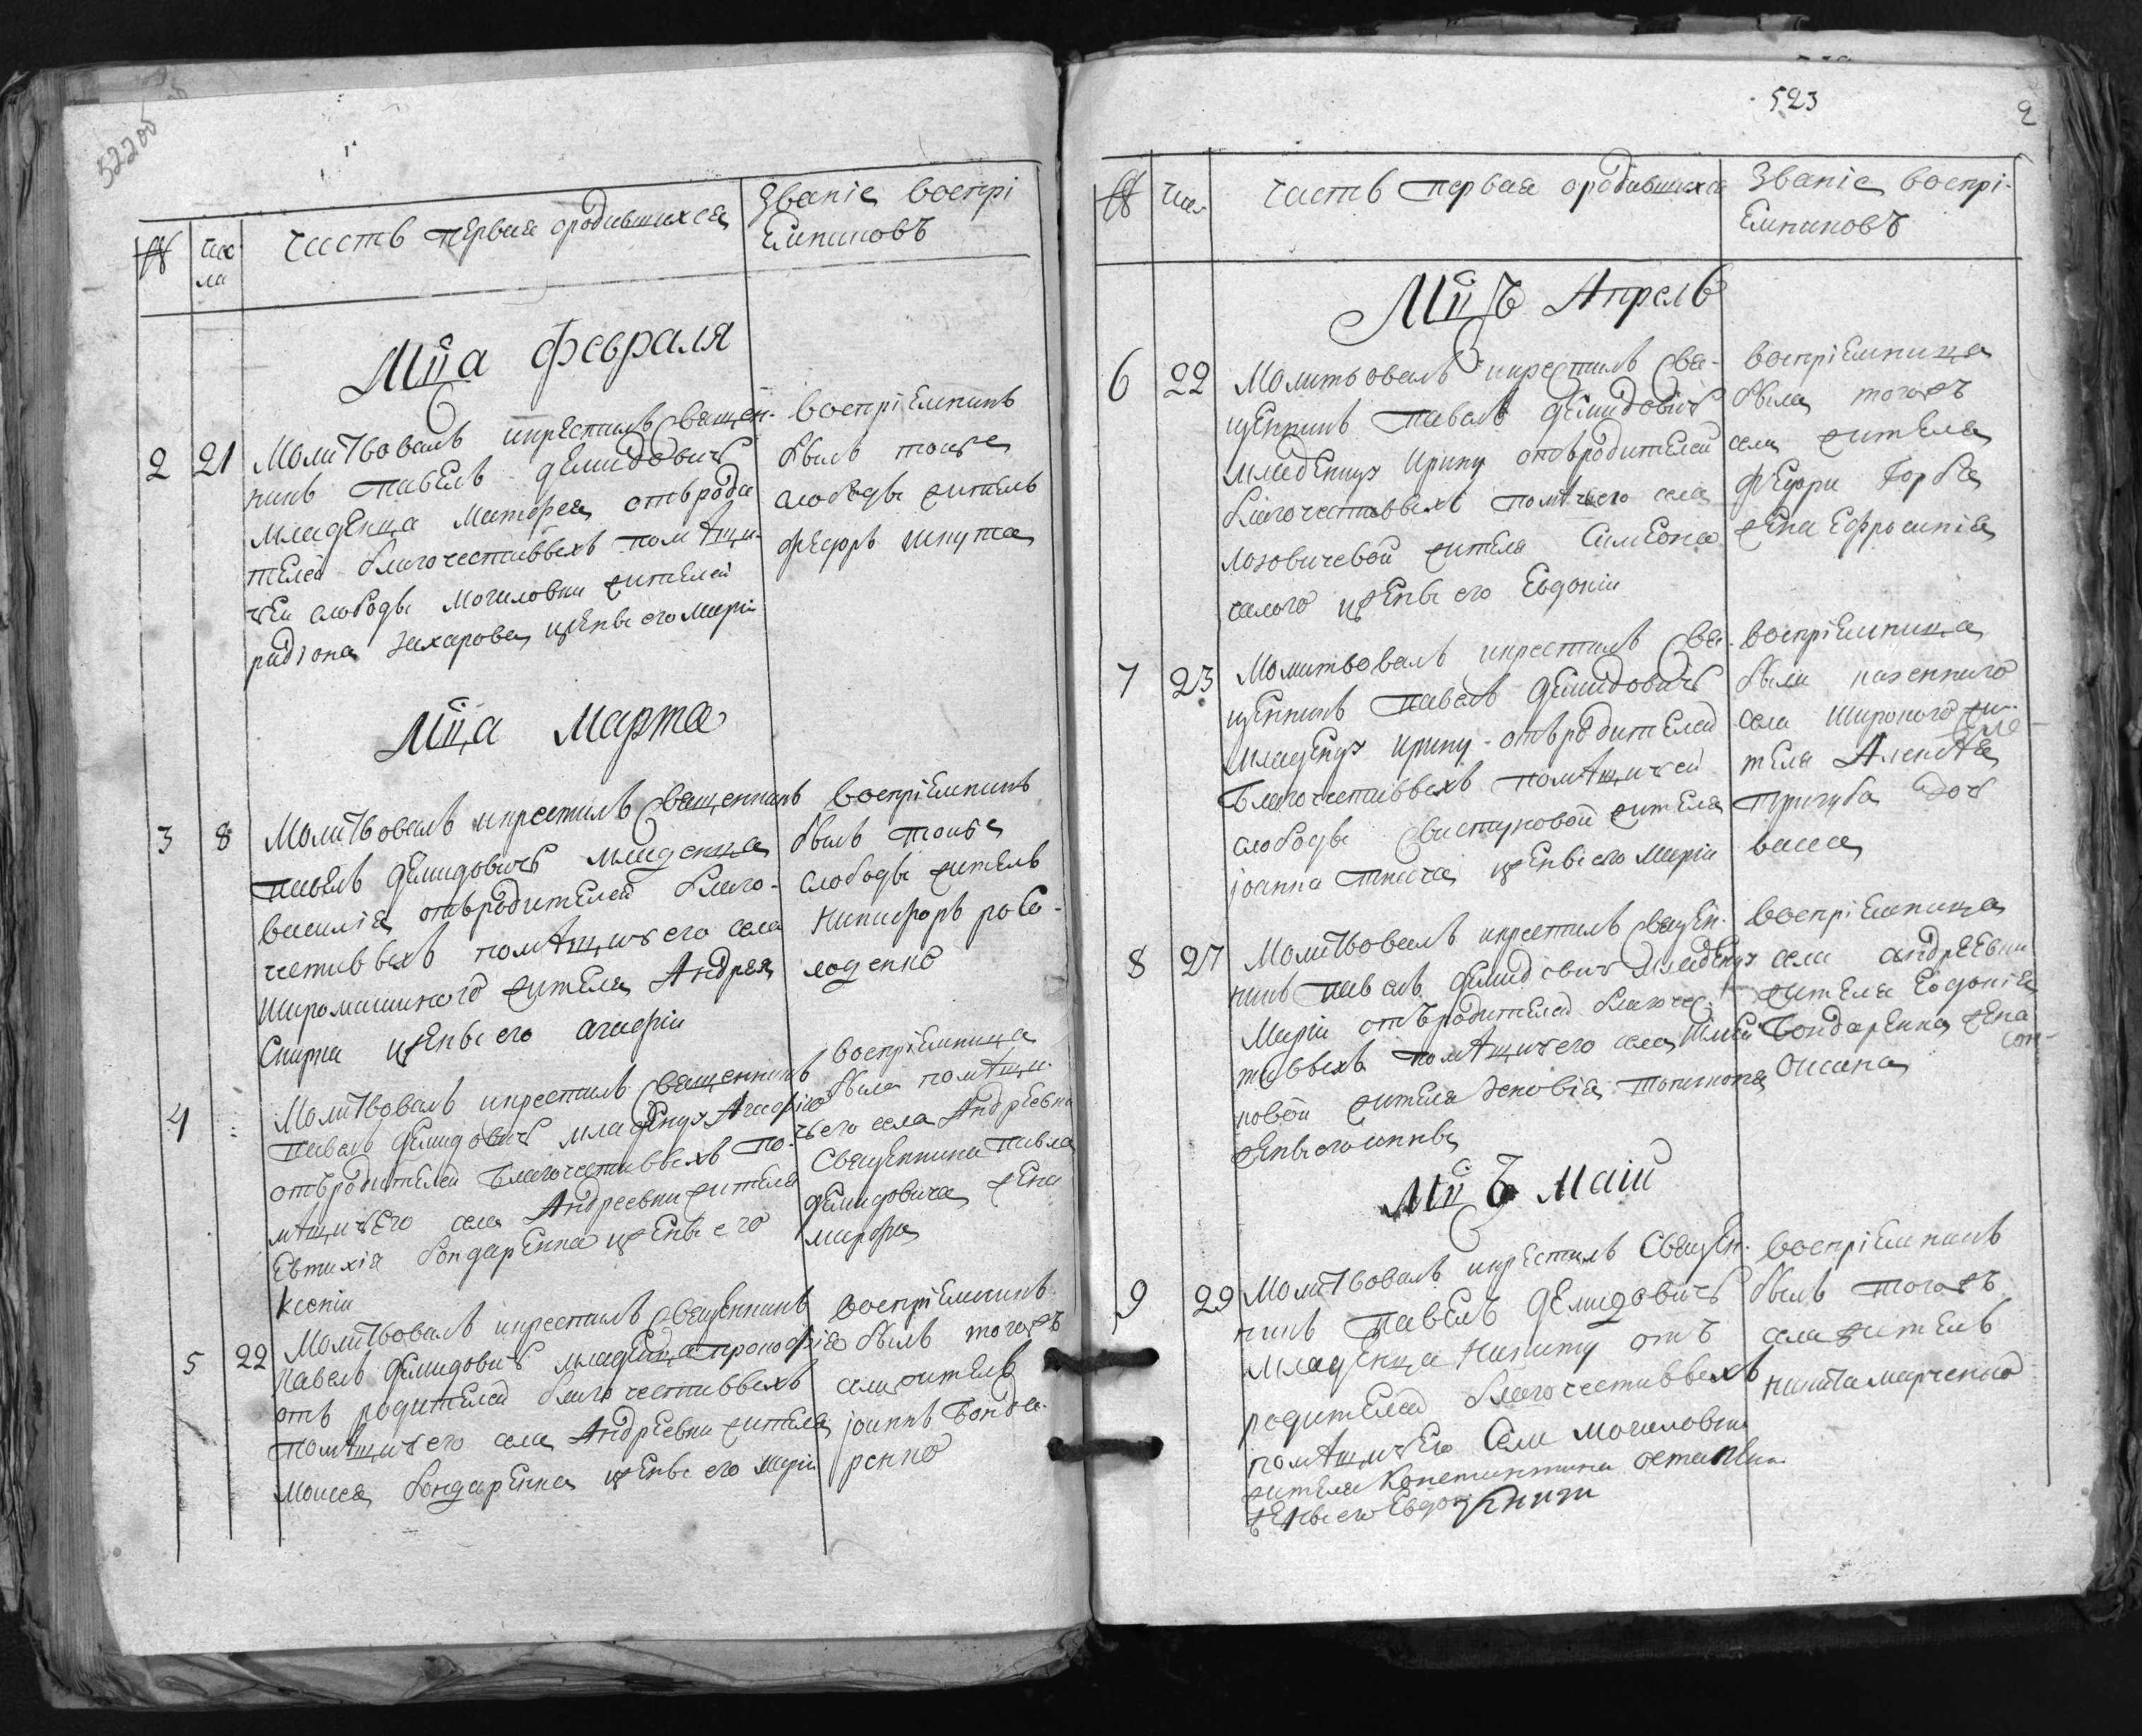 522об
№
Чис
ла
Часть первая ородившихся
Званіе воспрі
емниковъ
Мца Февраля
2 21 Молитвовалъ икрестилъ священ-
никъ Павелъ Демидовичъ
младенца Матфея отъроди
телей благочестивыхъ помѣщи-
чей слободы Могиловки жителей
радіона Захарова, ижены его Маріи
воспріемникъ
былъ тояже
слободы житель
Феодоръ Шпута
Мца Марта
3 8 Молитвовалъ икрестилъ священникъ
Павелъ Демидовичъ младенца
василія отъродителей благо-
честивыхъ помѣщичего села
жителя Андрея
ижены его агафіи
воспріемникъ
былъ тояже
слободы житель
Никифоръ
4 Молитвовалъ икрестилъ священникъ
Павелъ Демидовичъ младенцу Агафію
отъродителей благочестивыхъ по-
мѣщичего села Андреевки жителя
Евтихія бондаренка ижены его
Ксеніи
воспріемница
была помѣщи-
чего села Андреевки
Священника Павла
Демидовича жена
марфа
5 22 Молитвовалъ икрестилъ священникъ
Павелъ Демидовичъ младенца прокофія
отъ родителей благочестивыхъ
помѣщичего села Андреевки жителя
Моисея бондаренка ижены его Маріи
воспріемникъ
былъ тогожъ
села житель
іоаннъ бонда-
ренко
523
2
№
Чис
Часть первая ородившихся
Званіе воспрі-
емниковъ
Мцъ Апрель
6 22 Молитвовалъ икрестилъ свя-
щенникъ Павелъ Демидовичъ
младенцу Ирину отъродителей
благочестивыхъ помѣчего села
лозовичевой жителя Симеона
ижены его Евдокіи
воспріемница
была тогожъ
села жителя
Феодора Горба
жена Ефросинія
7 23 Молитвовалъ икрестилъ свя-
щенникъ Павелъ Демидовичъ
младенцу Ирину отъродителей
благочестивыхъ помѣщичей
слободы Свистуновой жителя
іоанна ткача ижены его Маріи
воспріемница
была казенного
села Широкого жи-
теля Алексѣя
Тригуба доч
васса
8 27 Молитвовалъ икрестилъ священ-
никъ Павелъ Демидовичъ младенцу
Марію отъродителей благочес-
тивыхъ помѣщичего села
новой жителя
жены его анны
воспріемница
села андреевки
жителя
бондаренка жена
Оксана
Мцъ Маій
9 29 Молитвовалъ икрестилъ Священ-
никъ Павелъ Демидовичъ
младенца Никиту отъ
родителей благочестивыхъ
помѣщичего Села Могиловки
жителя Константина
жены его
воспріемникъ
былъ тогожъ
села житель
Никита марченко